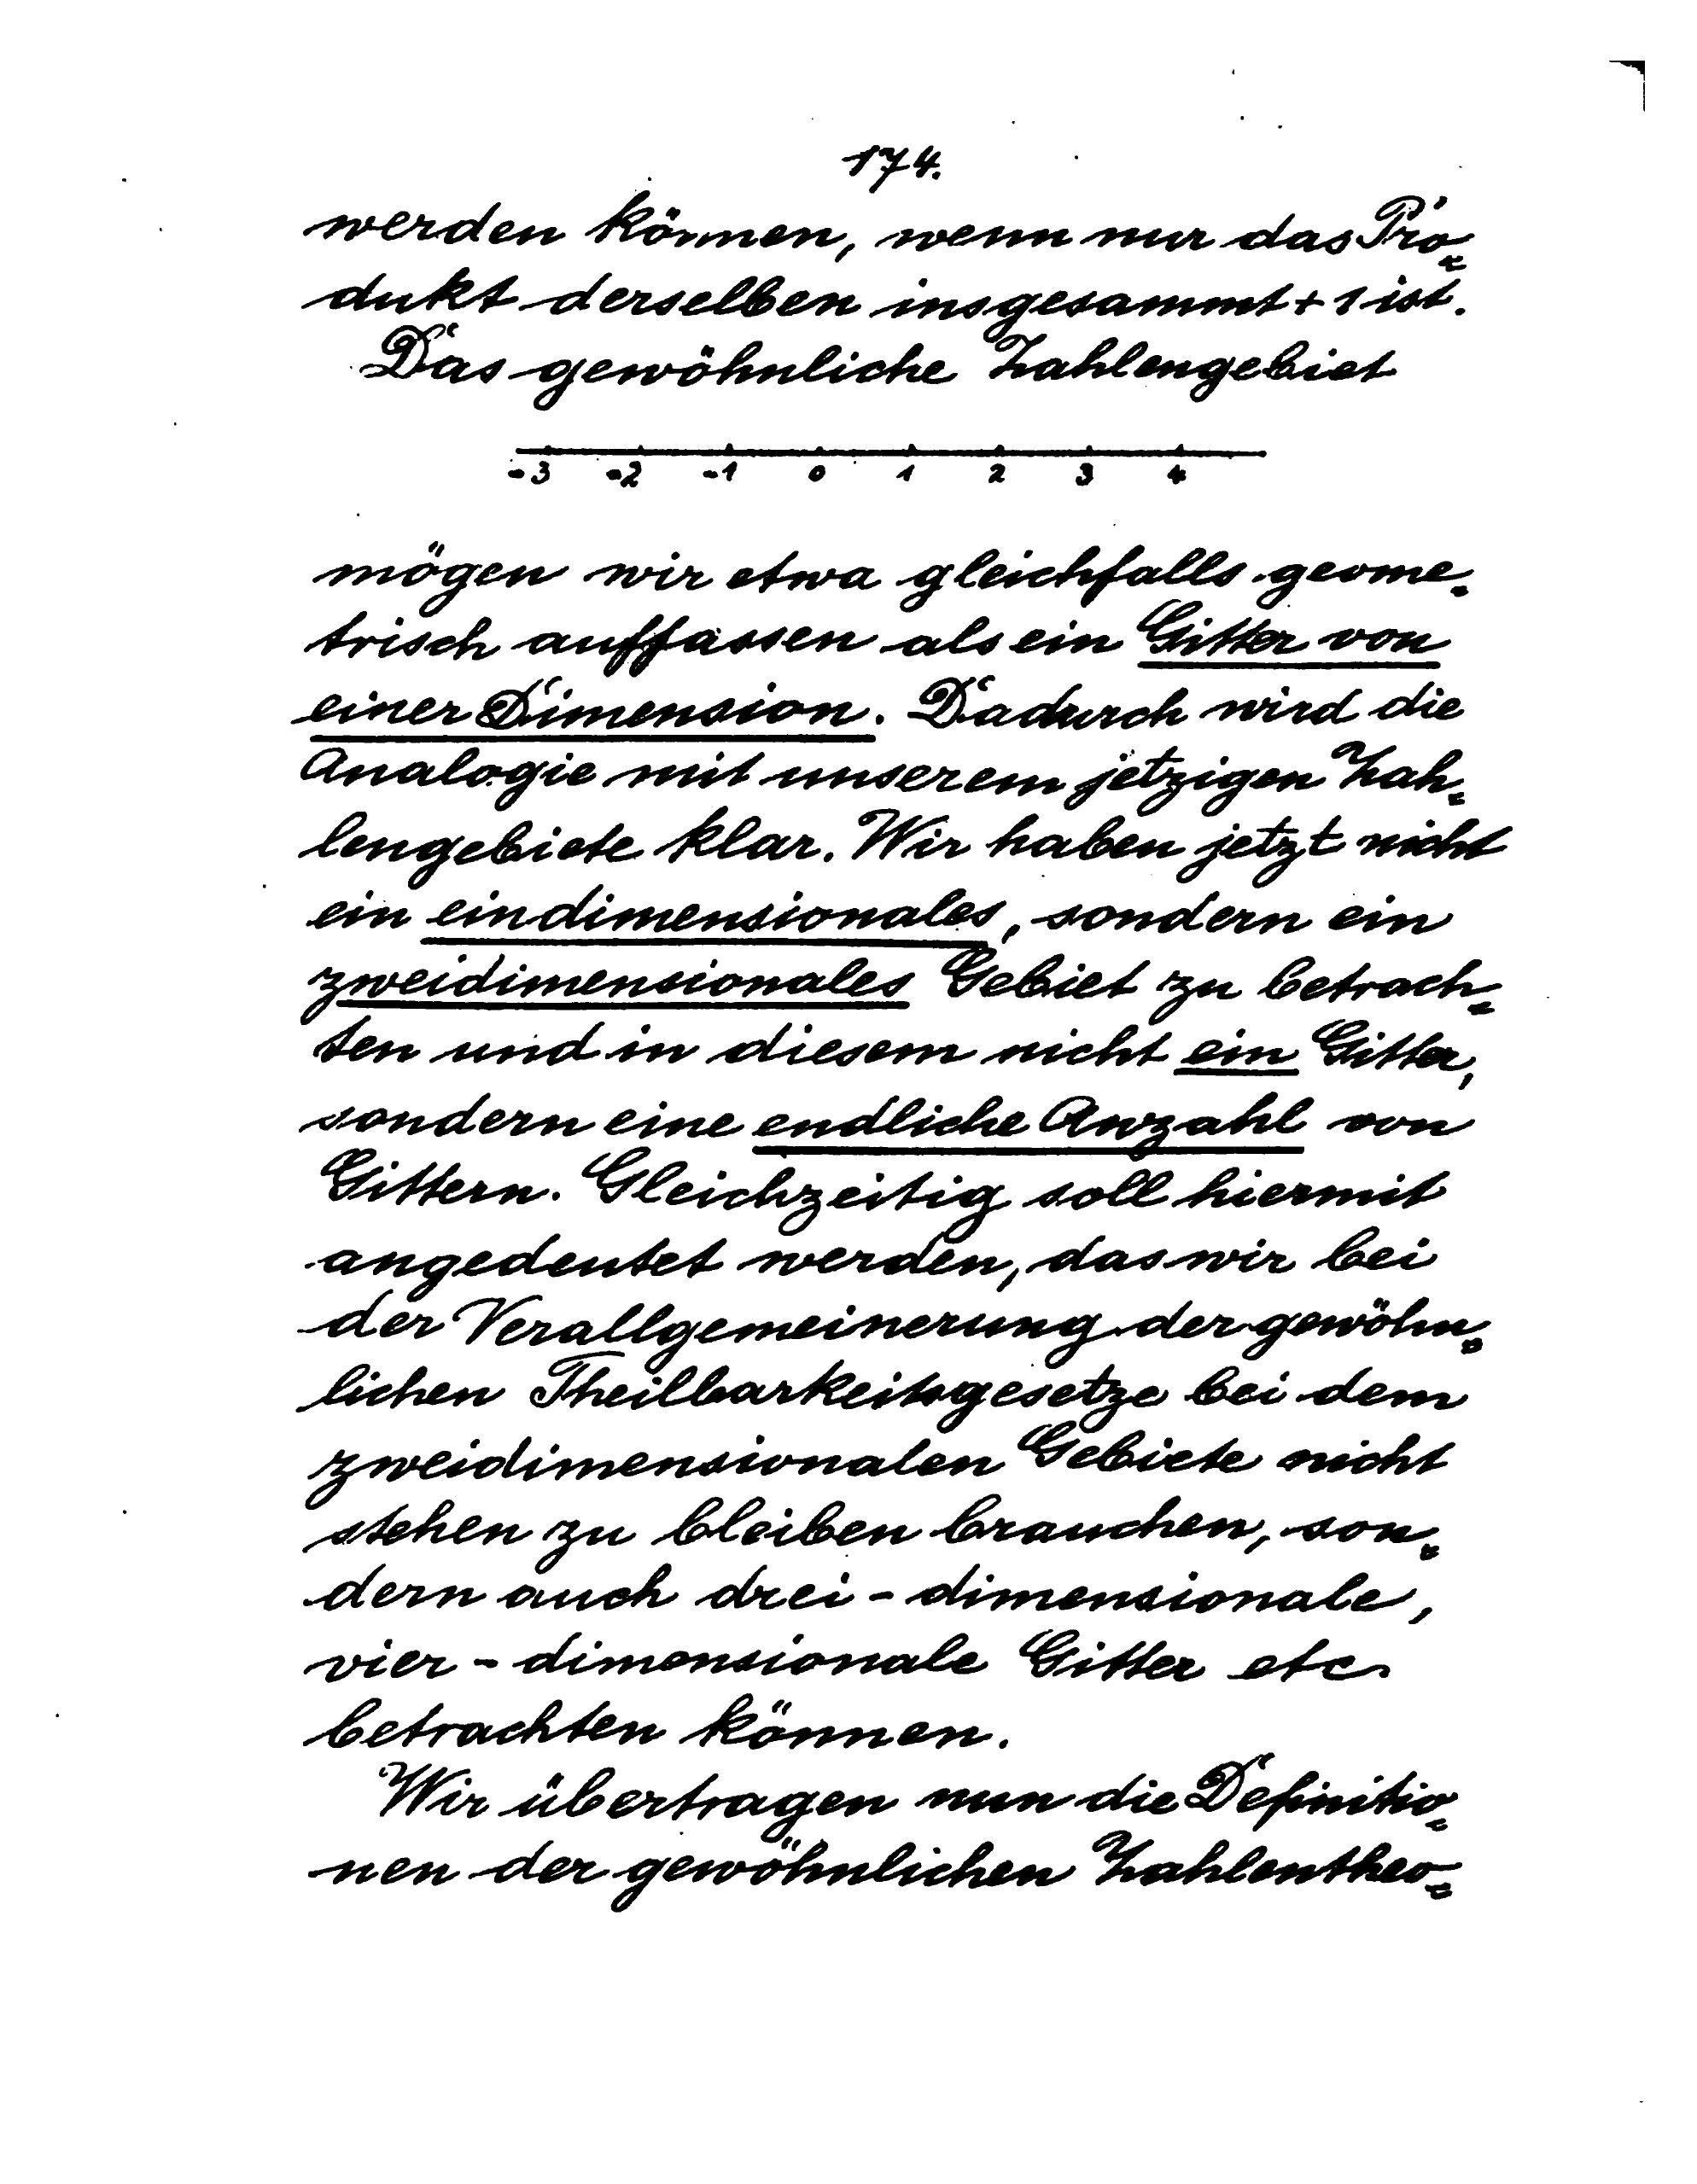 174.
werden können, wenn nur das Pro-
dukt derselben insgesammt + 1 ist.
Das gewöhnliche Zahlengebiet
-3 -2 -1 0 1 2 3 4
mögen wir etwa gleichfalls geome-
trisch auffassen als ein Gitter von
einer Dimension. Dadurch wird die
Analogie mit unserem jetzigen Zah-
lengebiete klar. Wir haben jetzt nicht
ein eindimensionales, sondern ein
zweidimensionales Gebiet zu betrach-
ten und in diesem nicht ein Gitter,
sondern eine endliche Anzahl von
Gittern. Gleichzeitig soll hiermit
angedeutet werden, das wir bei
der Verallgemeinerung der gewöhn-
lichen Theilbarkeitsgesetze bei dem
zweidimensionalen Gebiete nicht
stehen zu bleiben brauchen, son-
dern auch drei-dimensionale,
vier-dimensionale Gitter etc.
betrachten können.
Wir übertragen nun die Definitio-
nen der gewöhnlichen Zahlentheo-